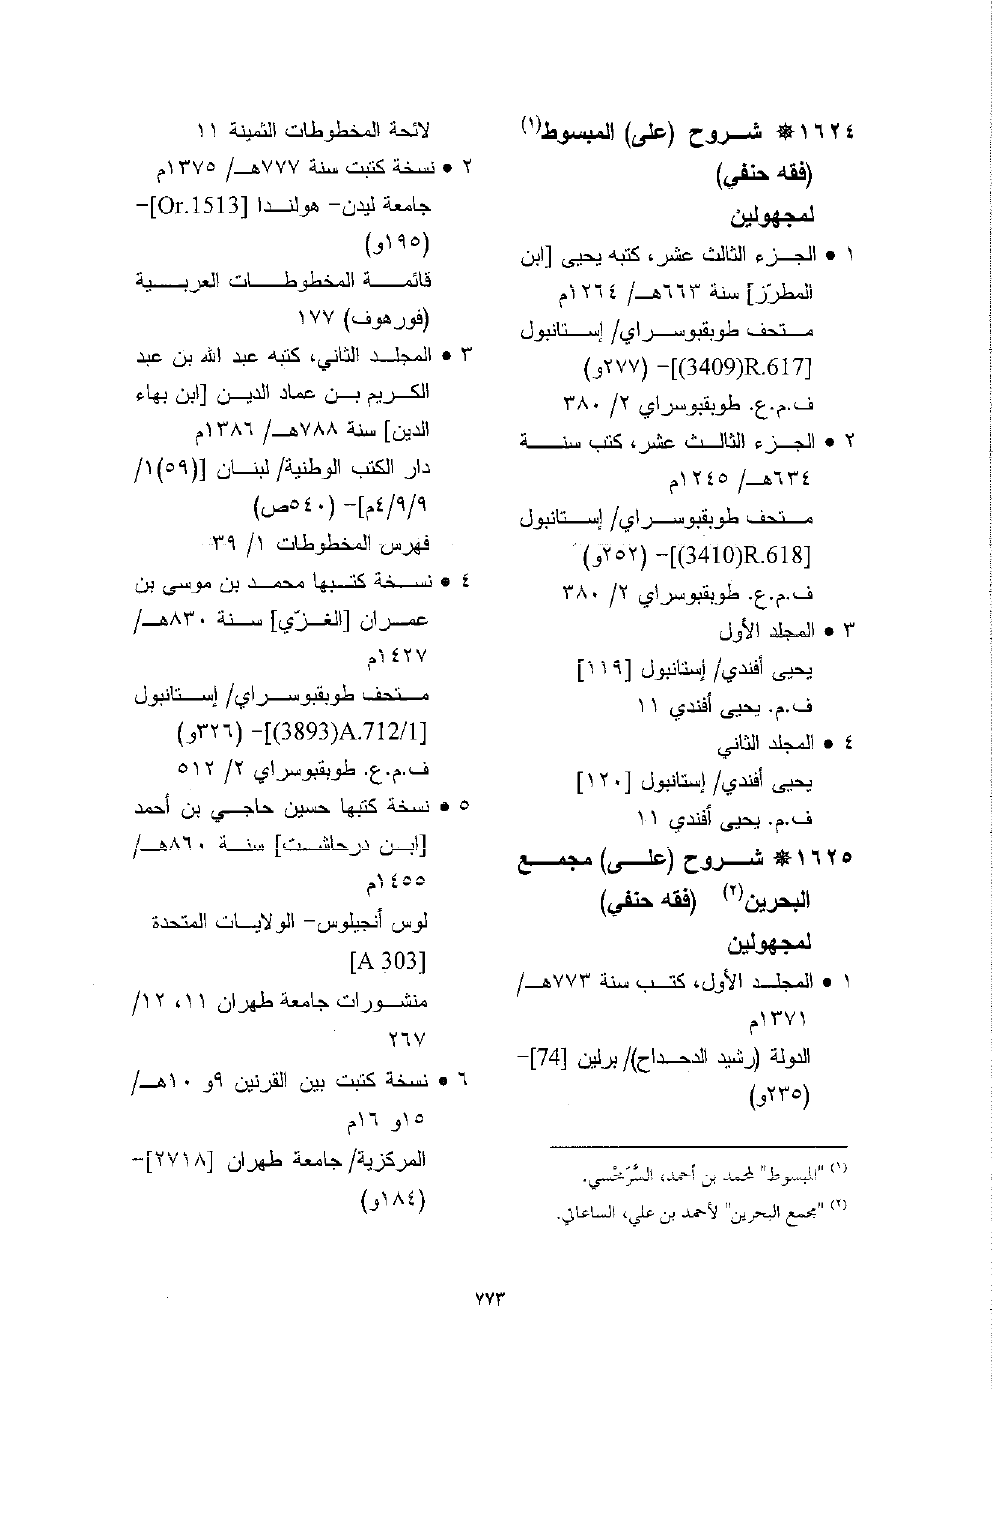 ١٦٢٤* شروح (على) المبسوط(١)
(فقه حنفي)
لمجهولين
١ • الجزء الثالث عشر، كتبه يحيى [ابن
المطرّز] سنة ٦٦٣هـ/ ١٢٦٤م
متحف طوبقبوسراي/ إستانبول
[R.617(3409)]- (٢٧٧و)
ف.م.ع. طوبقبوسراي ٢/ ٣٨٠
٢ • الجزء الثالث عشر، كتب سنة
٦٣٤هـ/ ١٢٤٥م
متحف طوبقبوسراي/ إستانبول
[R.618(3410)]- (٢٥٢و)
ف.م.ع. طوبقبوسراي ٢/ ٣٨٠
٣ • المجلد الأول
يحيى أفندي/ إستانبول [١١٩]
ف.م. يحيى أفندي ١١
٤ • المجلد الثاني
يحيى أفندي/ إستانبول [١٢٠]
ف.م. يحيى أفندي ١١
١٦٢٥* شروح (على) مجمع
البحرين(٢) (فقه حنفي)
لمجهولين
١ • المجلد الأول، كتب سنة ٧٧٣هـ/
١٣٧١م
الدولة (رشيد الدحداح)/ برلين [74]-
(٢٣٥و)
(١) "المبسوط" لمحمد بن أحمد، السَّرَخْسي.
(٢) "مجمع البحرين" لأحمد بن علي، الساعاتي.
لائحة المخطوطات الثمينة ١١
٢ • نسخة كتبت سنة ٧٧٧هـ/ ١٣٧٥م
جامعة ليدن- هولندا [Or.1513]-
(١٩٥و)
قائمة المخطوطات العربية
(فورهوف) ١٧٧
٣ • المجلد الثاني، كتبه عبد الله بن عبد
الكريم بن عماد الدين [ابن بهاء
الدين] سنة ٧٨٨هـ/ ١٣٨٦م
دار الكتب الوطنية/ لبنان [(٥٩)١/
٤/٩/٩م]- (٥٤٠ص)
فهرس المخطوطات ١/ ٣٩
٤ • نسخة كتبها محمد بن موسى بن
عمران [الغزّي] سنة ٨٣٠هـ/
١٤٢٧م
متحف طوبقبوسراي/ إستانبول
[A.712/1(3893)]- (٣٢٦و)
ف.م.ع. طوبقبوسراي ٢/ ٥١٢
٥ • نسخة كتبها حسين حاجي بن أحمد
[ابن درحاشت] سنة ٨٦٠هـ/
١٤٥٥م
لوس أنجيلوس- الولايات المتحدة
[A 303]
منشورات جامعة طهران ١١، ١٢/
٢٦٧
٦ • نسخة كتبت بين القرنين ٩و ١٠هـ/
١٥و ١٦م
المركزية/ جامعة طهران [٢٧١٨]-
(١٨٤و)
٧٧٣